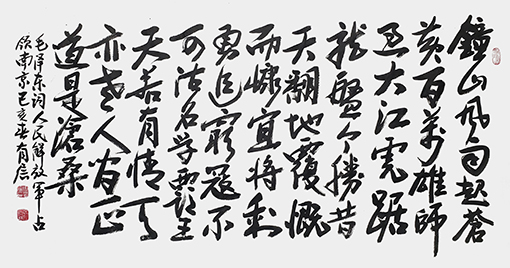 鐘山风雨起蒼
黄百萬雄師
过大江虎踞
龍盤今勝昔
天翻地覆慨
而慷宜将剩
勇追窮寇不
可沽名学霸王
天若有情天
亦老人间正
道是滄桑
毛泽东词人民解放軍占
领南京己亥春有信